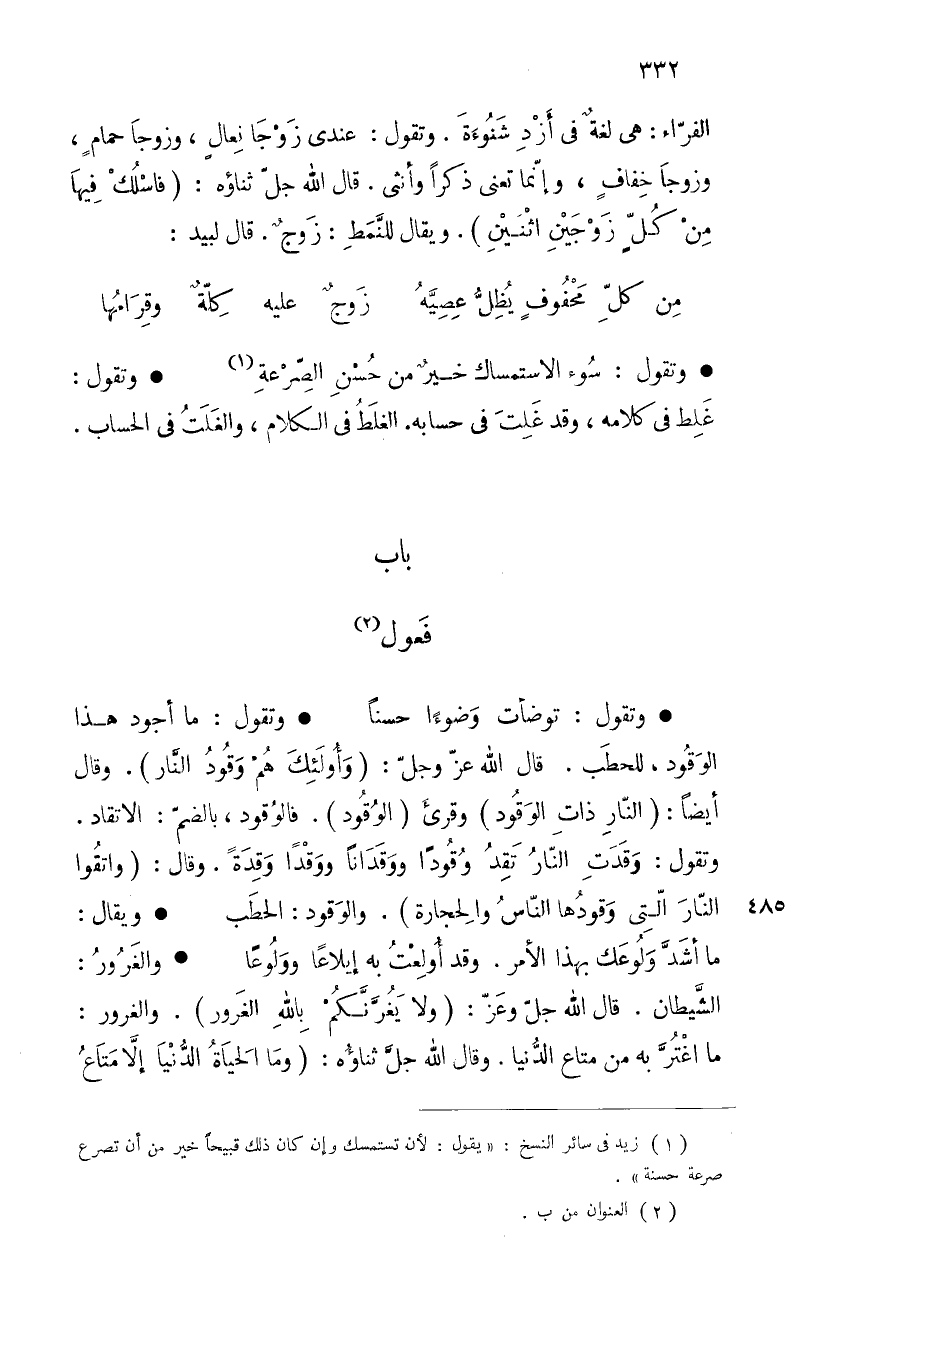 ٣٣٢
الفرّاء : هى لغةٌ فى أَزْدِ شَنُوءَةَ . وتقول : عندى زَوْجَا نِعالٍ ، وزوجاَ حمامٍ ،
وزوجاَ خِفافٍ ، وإنّما تعنى ذكراً وأنثى . قال الله جلّ ثناؤه : ( فاسْلُكْ فِيهاَ
مِنْ كُلٍّ زَوْجَيْنِ اثْنَيْنِ ) . ويقال للنَّمَطِ : زَوجٌ . قال لبيد :
مِن كلِّ مَحْفُوفٍ يُظِلُّ عِصِيَّهُ زَوجٌ عليه كِلّةٌ وقِرَامُها
● وتقول : سُوء الاستمساك خيرٌ من حُسْنِ الصِّرْعةِ (١) ● وتقول :
غَلِط فى كلامه ، وقد غَلِتَ فى حسابه. الغلَطُ فى الكلام ، والغَلَتُ فى الحساب .
باب
فَعول (٢)
● وتقول : توضأت وَضوءًا حسناً ● وتقول : ما أجود هذا
الوَقُود ، للحطَب . قال الله عزّ وجلّ : ( وَأُولَئِكَ هُمْ وَقُودُ النَّار ) . وقال
أيضاً : ( النّارِ ذاتِ الوَقُود ) وقرئَ ( الوُقُود ) . فالوُقود ، بالضمّ : الاتقاد .
وتقول : وَقَدَتِ النّارُ تَقِدُ وُقُودًا ووَقَدَاناً ووَقْدًا وَقِدَةً . وقال : ( واتقُوا
النّارَ الّتِى وَقودُها النّاسُ والحِجارة ) . والوَقود : الحطَب ● ويقال : ٤٨٥
ما أشَدَّ وَلُوعَك بهذا الأمر . وقد أُولِعْتُ به إيلاعًا ووَلُوعًا ● والغَرُورُ :
الشَّيطان . قال الله جلّ وعَزّ : ( ولا يَغُرَّنَّكمُ ْ بِاللهِ الغَرور ) . والغرور :
ما اغْتُرَّ به من متاع الدُّنيا . وقال الله جلَّ ثناؤُه : ( ومَا الحَيَاةُ الدُّنْيَا إلَّا مَتَاعُ
( ١ ) زيد فى سائر النسخ : « يقول : لأن تستمسك وإن كان ذلك قبيحاً خير من أن تصرع
صرعة حسنة » .
( ٢ ) العنوان من ب .